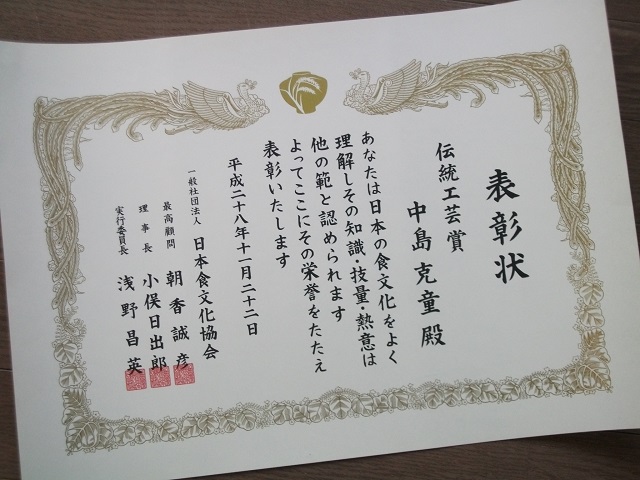 表彰状
伝統工芸賞
中島克童殿
あなたは日本の食文化をよく
理解しその知識・技量・熱意は
他の範と認められます
よってここにその栄誉をたたえ
表彰いたします
平成二十八年十一月二十二日
一般社団法人 日本食文化協会
最高顧問 朝香誠彦
理事長 小俣日出郎
実行委員長 浅野昌英